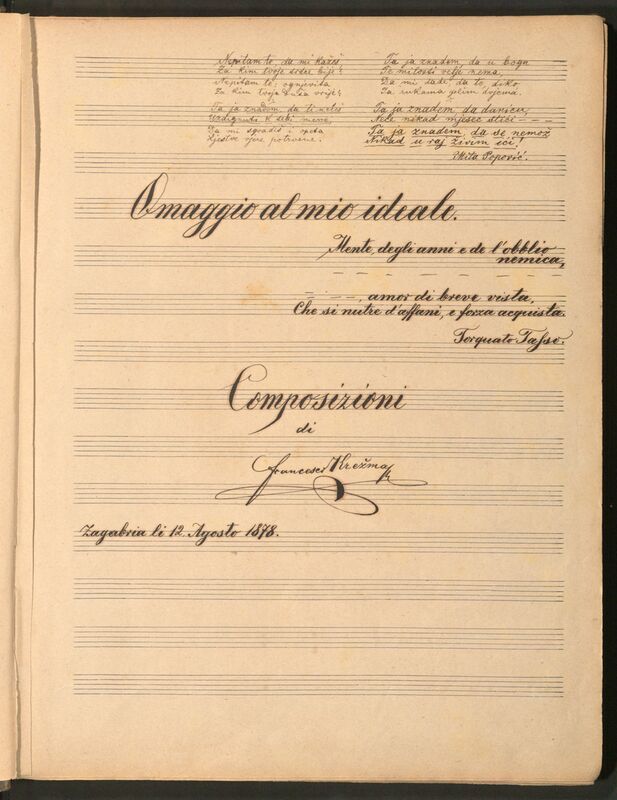 Nepitam te, da mi kažeš
Za kim tvoje srdce bije;
Nepitam te, ognjevita
Za kim tvoja duša vrije;
Ta ja znadem, da ti nebi
Uzdignuti k sebi mene,
Da mi sgradiš i
vjere potrvene.
Ta ja znadem, da u boga
Te milosti velje nema,
Da mi dade, da te, diko,
Za rukama plim dvjema.
Ta ja znadem, da danicu,
Neće nikad mjesec stići – – –
Ta ja znadem, da se nemož
Nikad u raj živim ići!
Mita Popović.
Omaggio al mio ideale.
Mente, degli anni e de l'obblio
nemica,
– – – – – –
– – –, amor di breve vista,
Che si nutre d'affani, e forza acquista.
Torquato Tasso.
Composizioni
di
Francesco Krežma
Zagabria li 12. Agosto 1878.